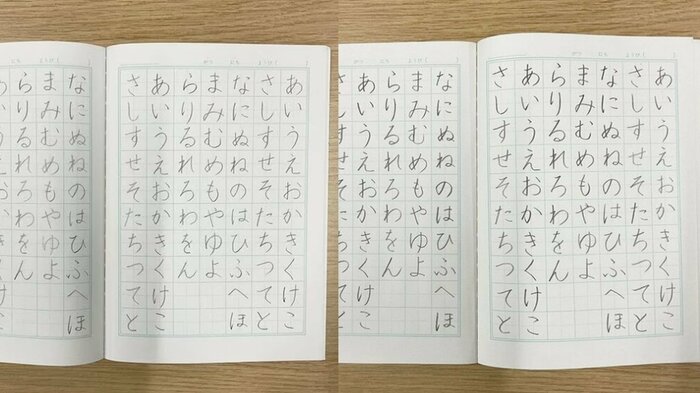 がつ にち ようび( )
あいうえおかきくけこ
さしすせそたちつてと
なにぬねのはひふへほ
まみむめもやゆよ
らりるれろわをん
あいうえおかきくけこ
さしすせそたちつてと
なにぬねのはひふへほ
まみむめもやゆよ
らりるれろわをん
がつ にち ようび( )
あいうえおかきくけこ
さしすせそたちつてと
なにぬねのはひふへほ
まみむめもやゆよ
らりるれろわをん
あいうえおかきくけこ
さしすせそたちつてと
なにぬねのはひふへほ
まみむめもやゆよ
らりるれろわをん
あいうえおかきくけこ
さしすせそたちつてと